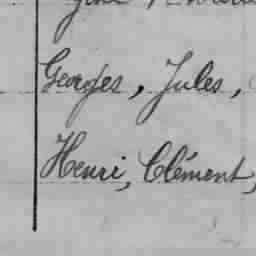 Georges, Jules,
Henri, Clément,